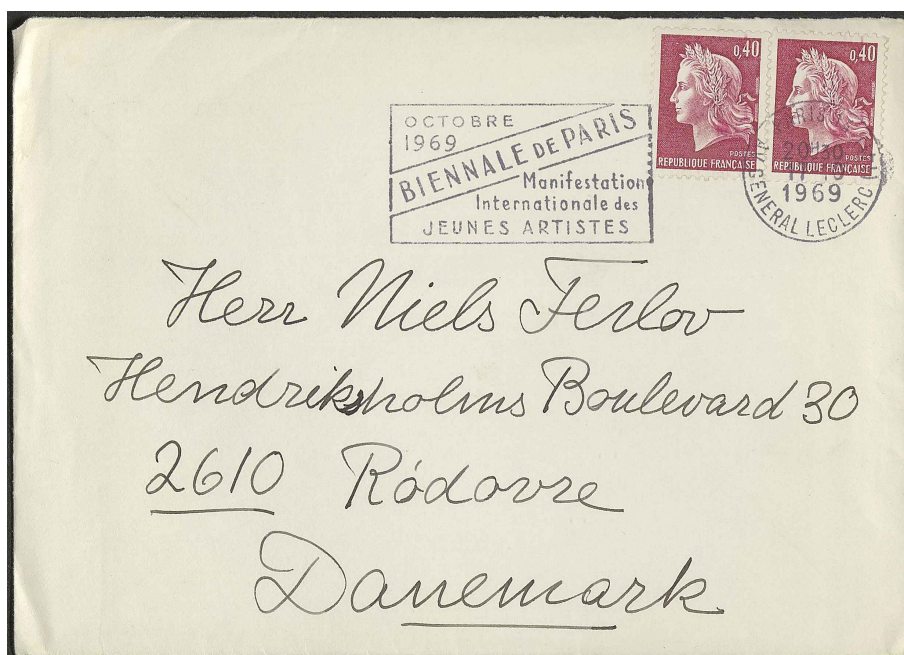 OCTOBRE
1969
BIENNALE DE PARIS
Manifestation
Internationale des
JEUNES ARTISTES
0,40
POSTES
REPUBLIQUE FRANÇAISE
0,40
POSTES
REPUBLIQUE FRANÇAISE
1969
GENERAL LECLERC
Herr Niels Ferlov
Hendriksholms Boulevard 30
2610 Ródovre
Danemark